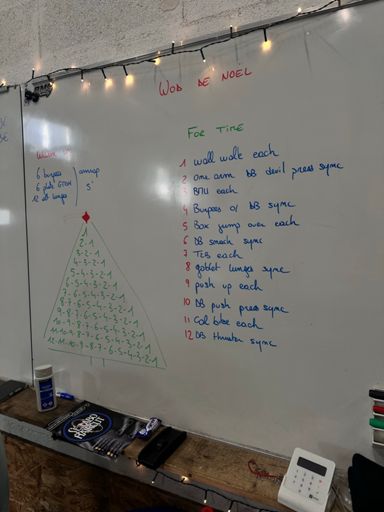 WOD DE NOËL
FOR TIME
6 burpees
amrap
5'
1 wall walk each
2 one arm DB devil press sync
3 BMU each
4 Burpees o/ DB sync
5 Box jump over each
6 DB snatch sync
7 TTB each
8 goblet lunges sync
9 push up each
10 DB push press sync
11 Cal bike each
12 DB thruster sync
1
2-1
3-2-1
4-3-2-1
5-4-3-2-1
6-5-4-3-2-1
7-6-5-4-3-2-1
8-7-6-5-4-3-2-1
9-8-7-6-5-4-3-2-1
10-9-8-7-6-5-4-3-2-1
11-10-9-8-7-6-5-4-3-2-1
12-11-10-9-8-7-6-5-4-3-2-1